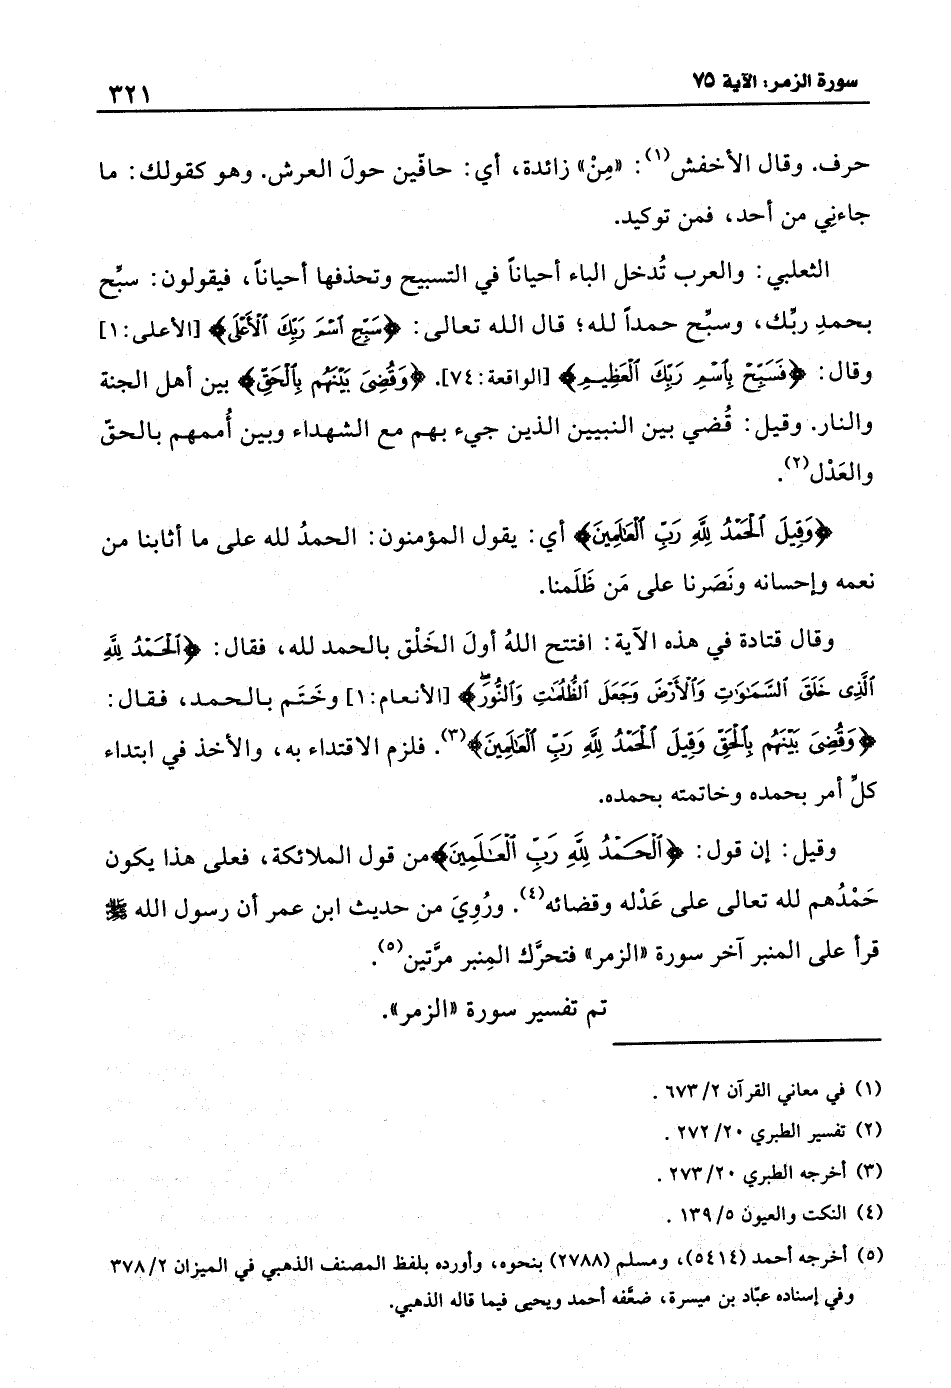 سورة الزمر: الآية ٧٥
٣٢١
حرف. وقال الأخفش(١): «مِنْ» زائدة، أي: حافّين حولَ العرش. وهو كقولك: ما
جاءنِي من أحد، فمن توكيد.
الثعلبي: والعرب تُدخل الباء أحياناً في التسبيح وتحذفها أحياناً، فيقولون: سبِّح
بحمدِ ربِّك، وسبِّح حمداً لله؛ قال الله تعالى: ﴿سَبِّحِ ٱسْمَ رَبِّكَ ٱلْأَعْلَى﴾ [الأعلى:١]
وقال: ﴿فَسَبِّحْ بِٱسْمِ رَبِّكَ ٱلْعَظِيمِ﴾ [الواقعة:٧٤]. ﴿وَقُضِىَ بَيْنَهُم بِٱلْحَقِّ﴾ بين أهل الجنة
والنار. وقيل: قُضي بين النبيين الذين جيء بهم مع الشهداء وبين أُممهم بالحقّ
والعَدْل(٢).
﴿وَقِيلَ ٱلْحَمْدُ لِلَّهِ رَبِّ ٱلْعَٰلَمِينَ﴾ أي: يقول المؤمنون: الحمدُ لله على ما أثابنا من
نعمه وإحسانه ونَصَرنا على مَن ظَلَمنا.
وقال قتادة في هذه الآية: افتتح اللهُ أولَ الخَلْق بالحمد لله، فقال: ﴿ٱلْحَمْدُ لِلَّهِ
ٱلَّذِى خَلَقَ ٱلسَّمَٰوَٰتِ وَٱلْأَرْضَ وَجَعَلَ ٱلظُّلُمَٰتِ وَٱلنُّورَۖ﴾ [الأنعام:١] وخَتَم بالحمد، فقال:
﴿وَقُضِىَ بَيْنَهُم بِٱلْحَقِّ وَقِيلَ ٱلْحَمْدُ لِلَّهِ رَبِّ ٱلْعَٰلَمِينَ﴾(٣). فلزم الاقتداء به، والأخذ في ابتداء
كلِّ أمر بحمده وخاتمته بحمده.
وقيل: إن قول: ﴿ٱلْحَمْدُ لِلَّهِ رَبِّ ٱلْعَٰلَمِينَ﴾من قول الملائكة، فعلى هذا يكون
حَمْدُهم لله تعالى على عَدْله وقضائه(٤). ورُوِيَ من حديث ابن عمر أن رسول الله ﷺ
قرأ على المنبر آخر سورة «الزمر» فتحرَّك المِنبر مرَّتين(٥).
تم تفسير سورة «الزمر».
(١) في معاني القرآن ٢/ ٦٧٣ .
(٢) تفسير الطبري ٢٠/ ٢٧٢ .
(٣) أخرجه الطبري ٢٠/ ٢٧٣ .
(٤) النكت والعيون ٥/ ١٣٩ .
(٥) أخرجه أحمد (٥٤١٤)، ومسلم (٢٧٨٨) بنحوه، وأورده بلفظ المصنف الذهبي في الميزان ٢/ ٣٧٨
وفي إسناده عبّاد بن ميسرة، ضعَّفه أحمد ويحيى فيما قاله الذهبي.